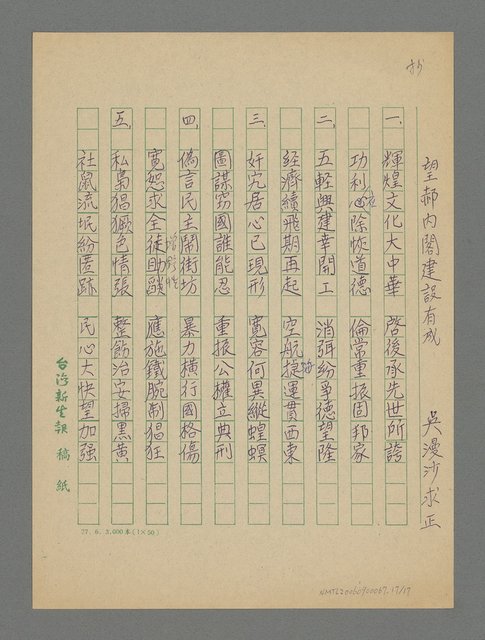 抄
望郝內閣建設有成　吳漫沙求正
一、輝煌文化大中華　啓後承先世所誇
功利心除恢道德　倫常重振固邦家
二、五輕興建幸開工　消弭紛爭德望隆
經濟續飛期再起　空航捷運貫西東
三、奸宄居心已現形　寬容何異縱蝗螟
圖謀竊國誰能忍　重振公權立典刑
四、偽言民主鬧街坊　暴力橫行國格傷
寬恕求全徒助 應施鐵腕制猖狂
五、私梟猖獗色情張　整飭治安掃黑黃
社鼠流氓紛匿跡　民心大快望加強
台灣新生報 稿紙
77. 6. 3,000本(1×50)
NMTL20060900067.17/17